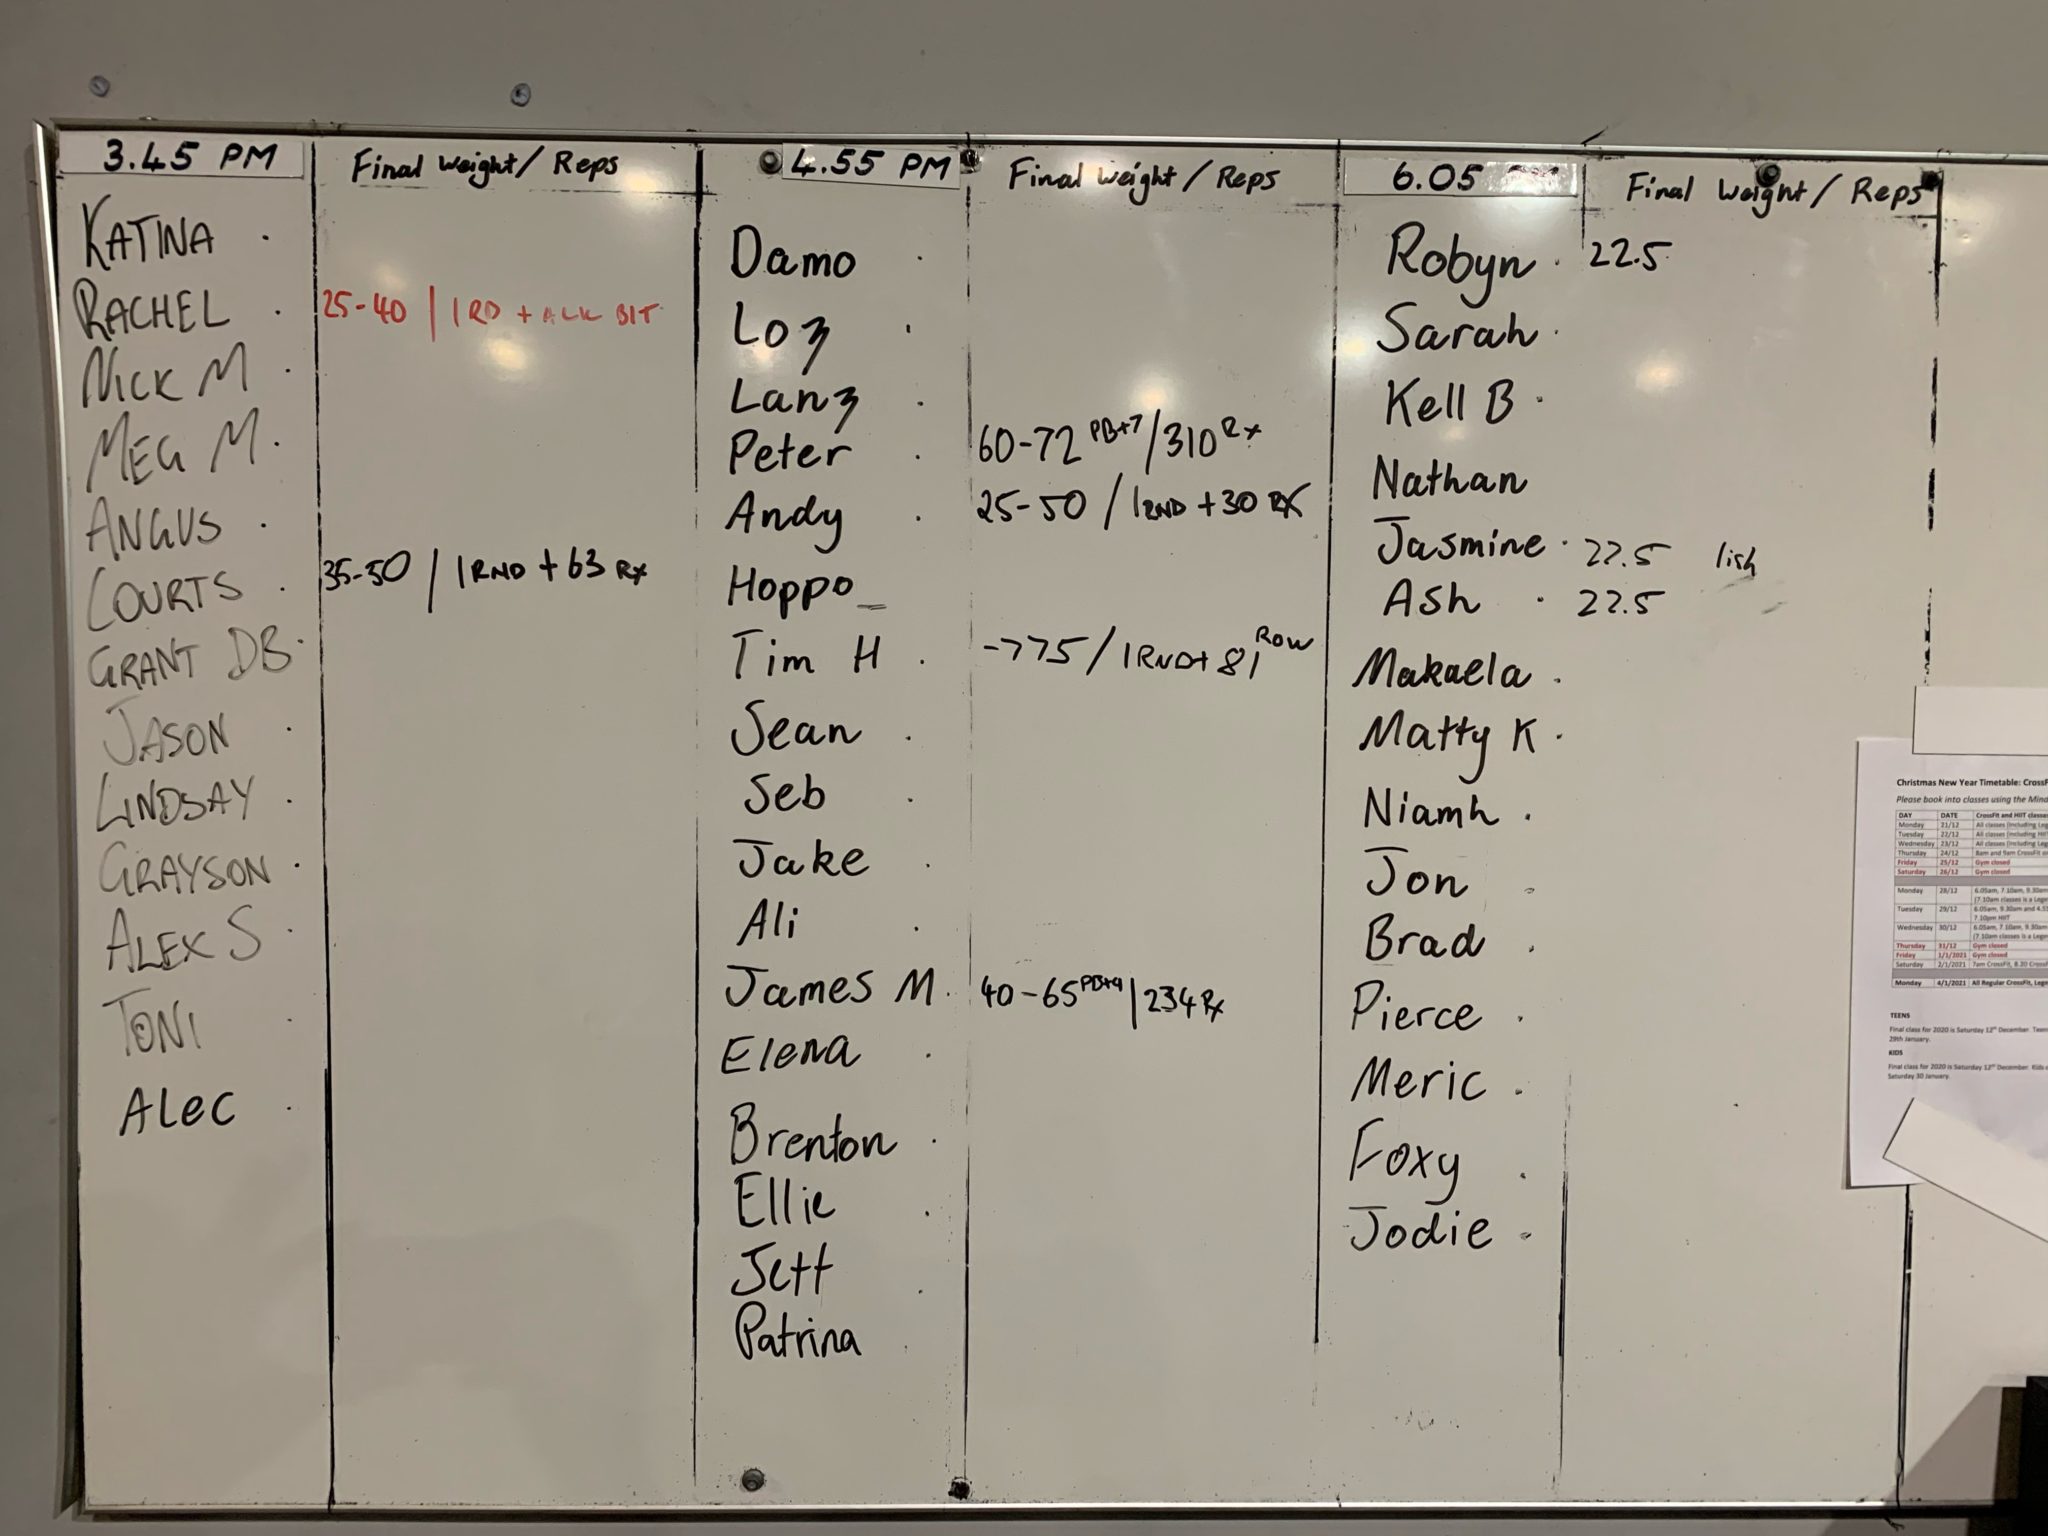 3.45 PM
Final Weight / Reps
KATINA .
RACHEL . 25-40 | 1 RD +
NICK M .
MEG M .
ANGUS .
COURTS . 35-50 / 1 RND + 63 Rx
GRANT DB .
JASON .
LINDSAY .
GRAYSON .
ALEX S .
TONI .
ALEC .
4.55 PM
Final Weight / Reps
Damo .
Loz .
Lanz .
Peter . 60-72 PB+7 / 310 Rx
Andy . 25-50 / 1 RND + 30 RX
Hoppo _
Tim H . 75 / 1 RND + 81 Row
Sean .
Seb .
Jake .
Ali .
James M . 40-65 / 234 Rx
Elena .
Brenton .
Ellie .
Jett .
Patrina .
6.05
Final Weight / Reps
Robyn . 22.5
Sarah .
Kell B .
Nathan
Jasmine . 22.5
Ash . 22.5
Makaela .
Matty K .
Niamh .
Jon .
Brad .
Pierce .
Meric .
Foxy .
Jodie .
Christmas New Year Timetable: CrossF
Please book into classes using the Mind
DAY DATE CrossFit and HIIT classes
Monday 21/12 All classes (including Leg
Tuesday 22/12 All classes (including HIIT
Wednesday 23/12 All classes (including Leg
Thursday 24/12 8am and 9am CrossFit
Friday 25/12 Gym closed
Saturday 26/12 Gym closed
Monday 28/12 6.05am, 7.10am, 9.30am
(7.10am classes is a Lege
Tuesday 29/12 6.05am, 9.30am and 4.55
7.10pm HIIT
Wednesday 30/12 6.05am, 7.10am, 9.30am
(7.10am classes is a Lege
Thursday 31/12 Gym closed
Friday 1/1/2021 Gym closed
Saturday 2/1/2021 7am CrossFit, 8.30 CrossF
Monday 4/1/2021 All Regular CrossFit, Lege
TEENS
Final class for 2020 is Saturday 12th December. Teen
29th January.
KIDS
Final class for 2020 is Saturday 12th December. Kids
Saturday 30 January.